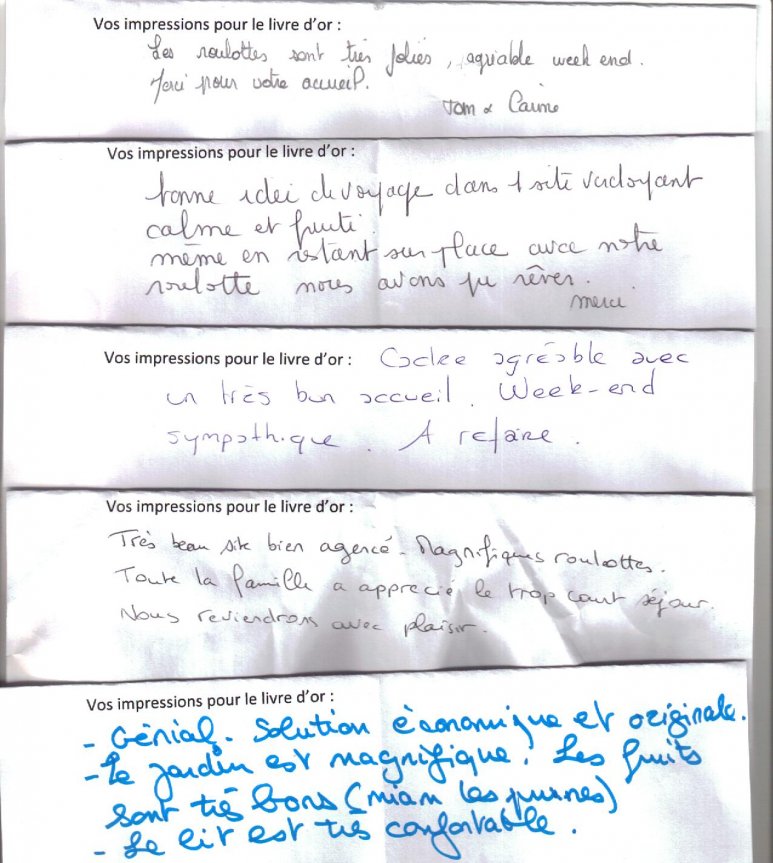 Vos impressions pour le livre d'or :
Les roulottes sont très jolies, agréable week end.
Merci pour votre accueil.
Tom &
Vos impressions pour le livre d'or :
bonne idée de voyage dans 1 site verdoyant
calme et fruité.
même en restant sur place avec notre
roulotte nous avons pu rêver.
merci
Vos impressions pour le livre d'or : Cadre agréable avec
un très bon accueil. Week-end
sympathique. A refaire.
Vos impressions pour le livre d'or :
Très beau site bien agencé. Magnifiques roulottes.
Toute la famille a apprecié le trop court séjour.
Nous reviendrons avec plaisir.
Vos impressions pour le livre d'or :
- Génial. Solution économique et originale.
- Le jardin est magnifique. Les fruits
sont très bons (miam les prunes)
- Le lit est très confortable.